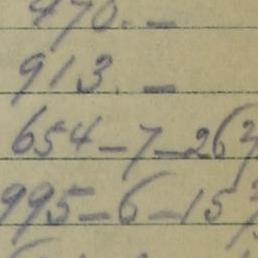 470. —
913. —
654 — 7 — 26
995 — 6 — 15